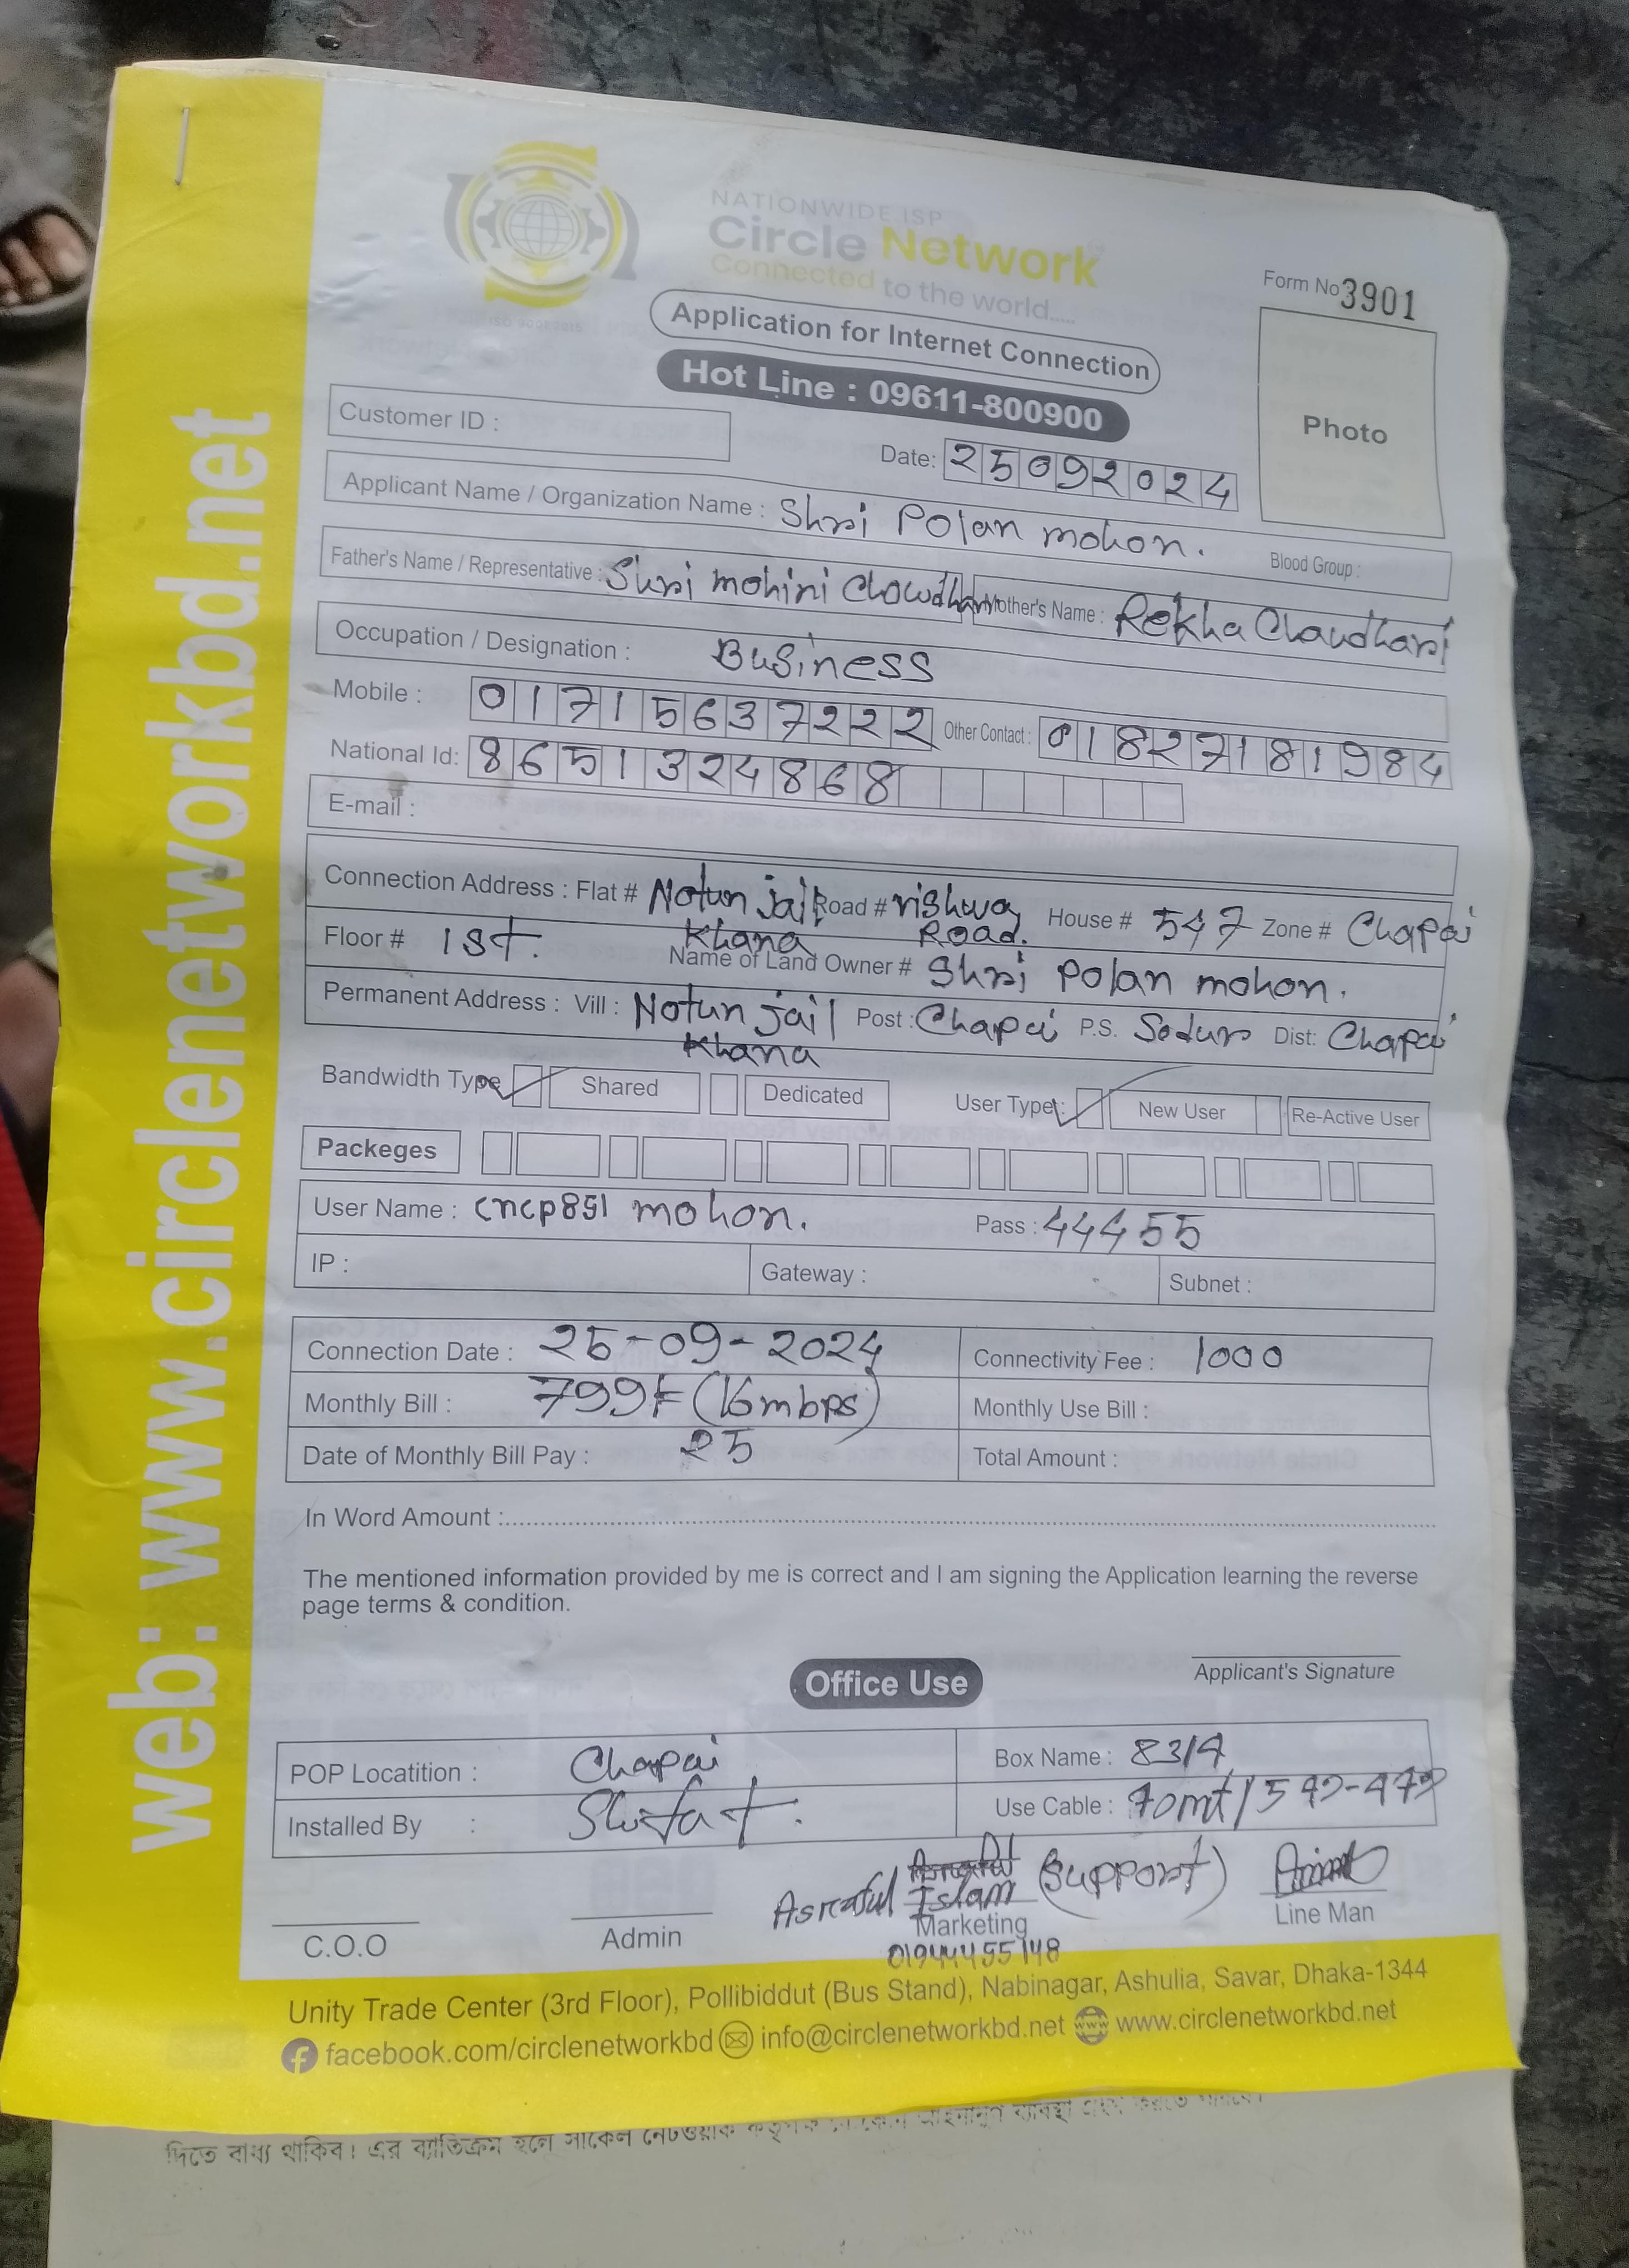 web: www.circlenetworkbd.net
NATIONWIDE ISP
Circle Network
Connected to the world.....
Form No 3901
Application for Internet Connection
Hot Line : 09611-800900
Photo
Customer ID :
Date: 25092024
Applicant Name / Organization Name : Shri Polan mohon.
Blood Group :
Father's Name / Representative : Shri mohini Chowdhari Mother's Name : Rekha Chaudhari
Occupation / Designation : Business
Mobile : 01715637222 Other Contact : 01827181984
National Id: 8651324868
E-mail :
Connection Address : Flat # Notun jail Khana Road # vishwa Road. House # 547 Zone # Chapai
Floor # 1st. Name of Land Owner # Shri Polan mohon.
Permanent Address : Vill : Notun jail Khana Post : Chapai P.S. Sodur Dist: Chapai
Bandwidth Type Shared Dedicated User Type: New User Re-Active User
Packeges
User Name : cncp851 mohon. Pass : 44455
IP : Gateway : Subnet :
Connection Date : 25-09-2024 Connectivity Fee : 1000
Monthly Bill : 799 (16mbps) Monthly Use Bill :
Date of Monthly Bill Pay : 25 Total Amount :
In Word Amount :
The mentioned information provided by me is correct and I am signing the Application learning the reverse
page terms & condition.
Applicant's Signature
Office Use
POP Locatition : Chapai Box Name : 83/4
Installed By : Shifat. Use Cable : 70mt/
Asraful Islam (Support)
C.O.O Admin Marketing Line Man
01944455148
Unity Trade Center (3rd Floor), Pollibiddut (Bus Stand), Nabinagar, Ashulia, Savar, Dhaka-1344
facebook.com/circlenetworkbd info@circlenetworkbd.net www.circlenetworkbd.net
দিতে বাধ্য থাকিব। এর ব্যতিক্রম হলে সার্কেল নেটওয়ার্ক